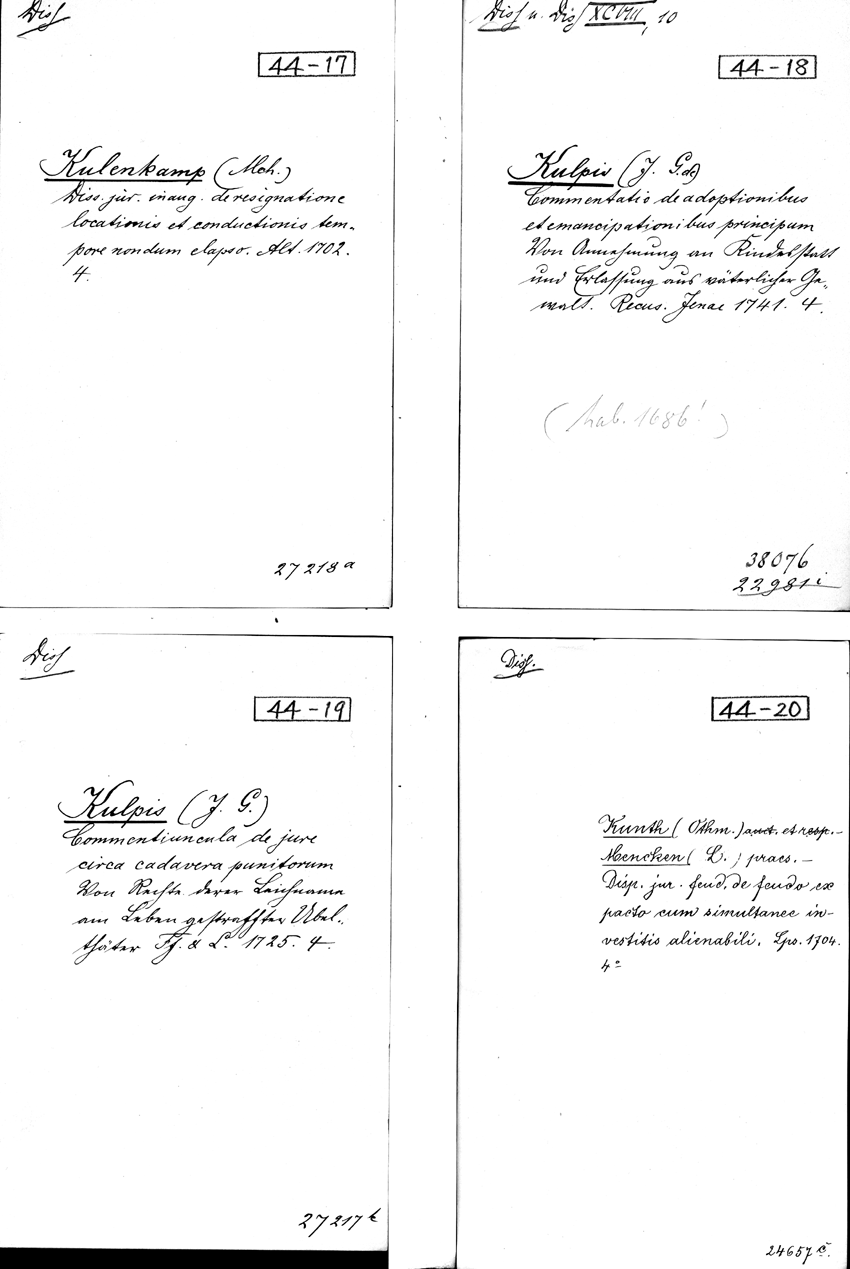 Diss
44-17
Kulenkamp (Mch.)
Diss. jur. inaug. de resignatione
locationis et conductionis tem-
pore nondum elapso. Alt. 1702.
4.
27218a
Diss u. Diss XCVIII, 10
44-18
Kulpis (J. G. de)
Commentatio de adoptionibus
et emancipationibus principum
Von Annehmung an Kindesstatt
und Erlassung aus väterlicher Ge-
walt. Recus. Jenae 1741. 4.
(hab. 1686!)
38076
22981i
Diss
44-19
Kulpis (J. G.)
Commentiuncula de jure
circa cadavera punitorum
Von Rechte derer Leichname
am Leben gestraffter Übel-
thäter Ff. & L. 1725. 4.
27217k
Diss.
44-20
Kunth (Othm.) auct. et resp. -
Mencken (L.) praes. -
Disp. jur. feud. de feudo ex
pacto cum simultanee in-
vestitis alienabili. Lps. 1704.
4°
24657c.